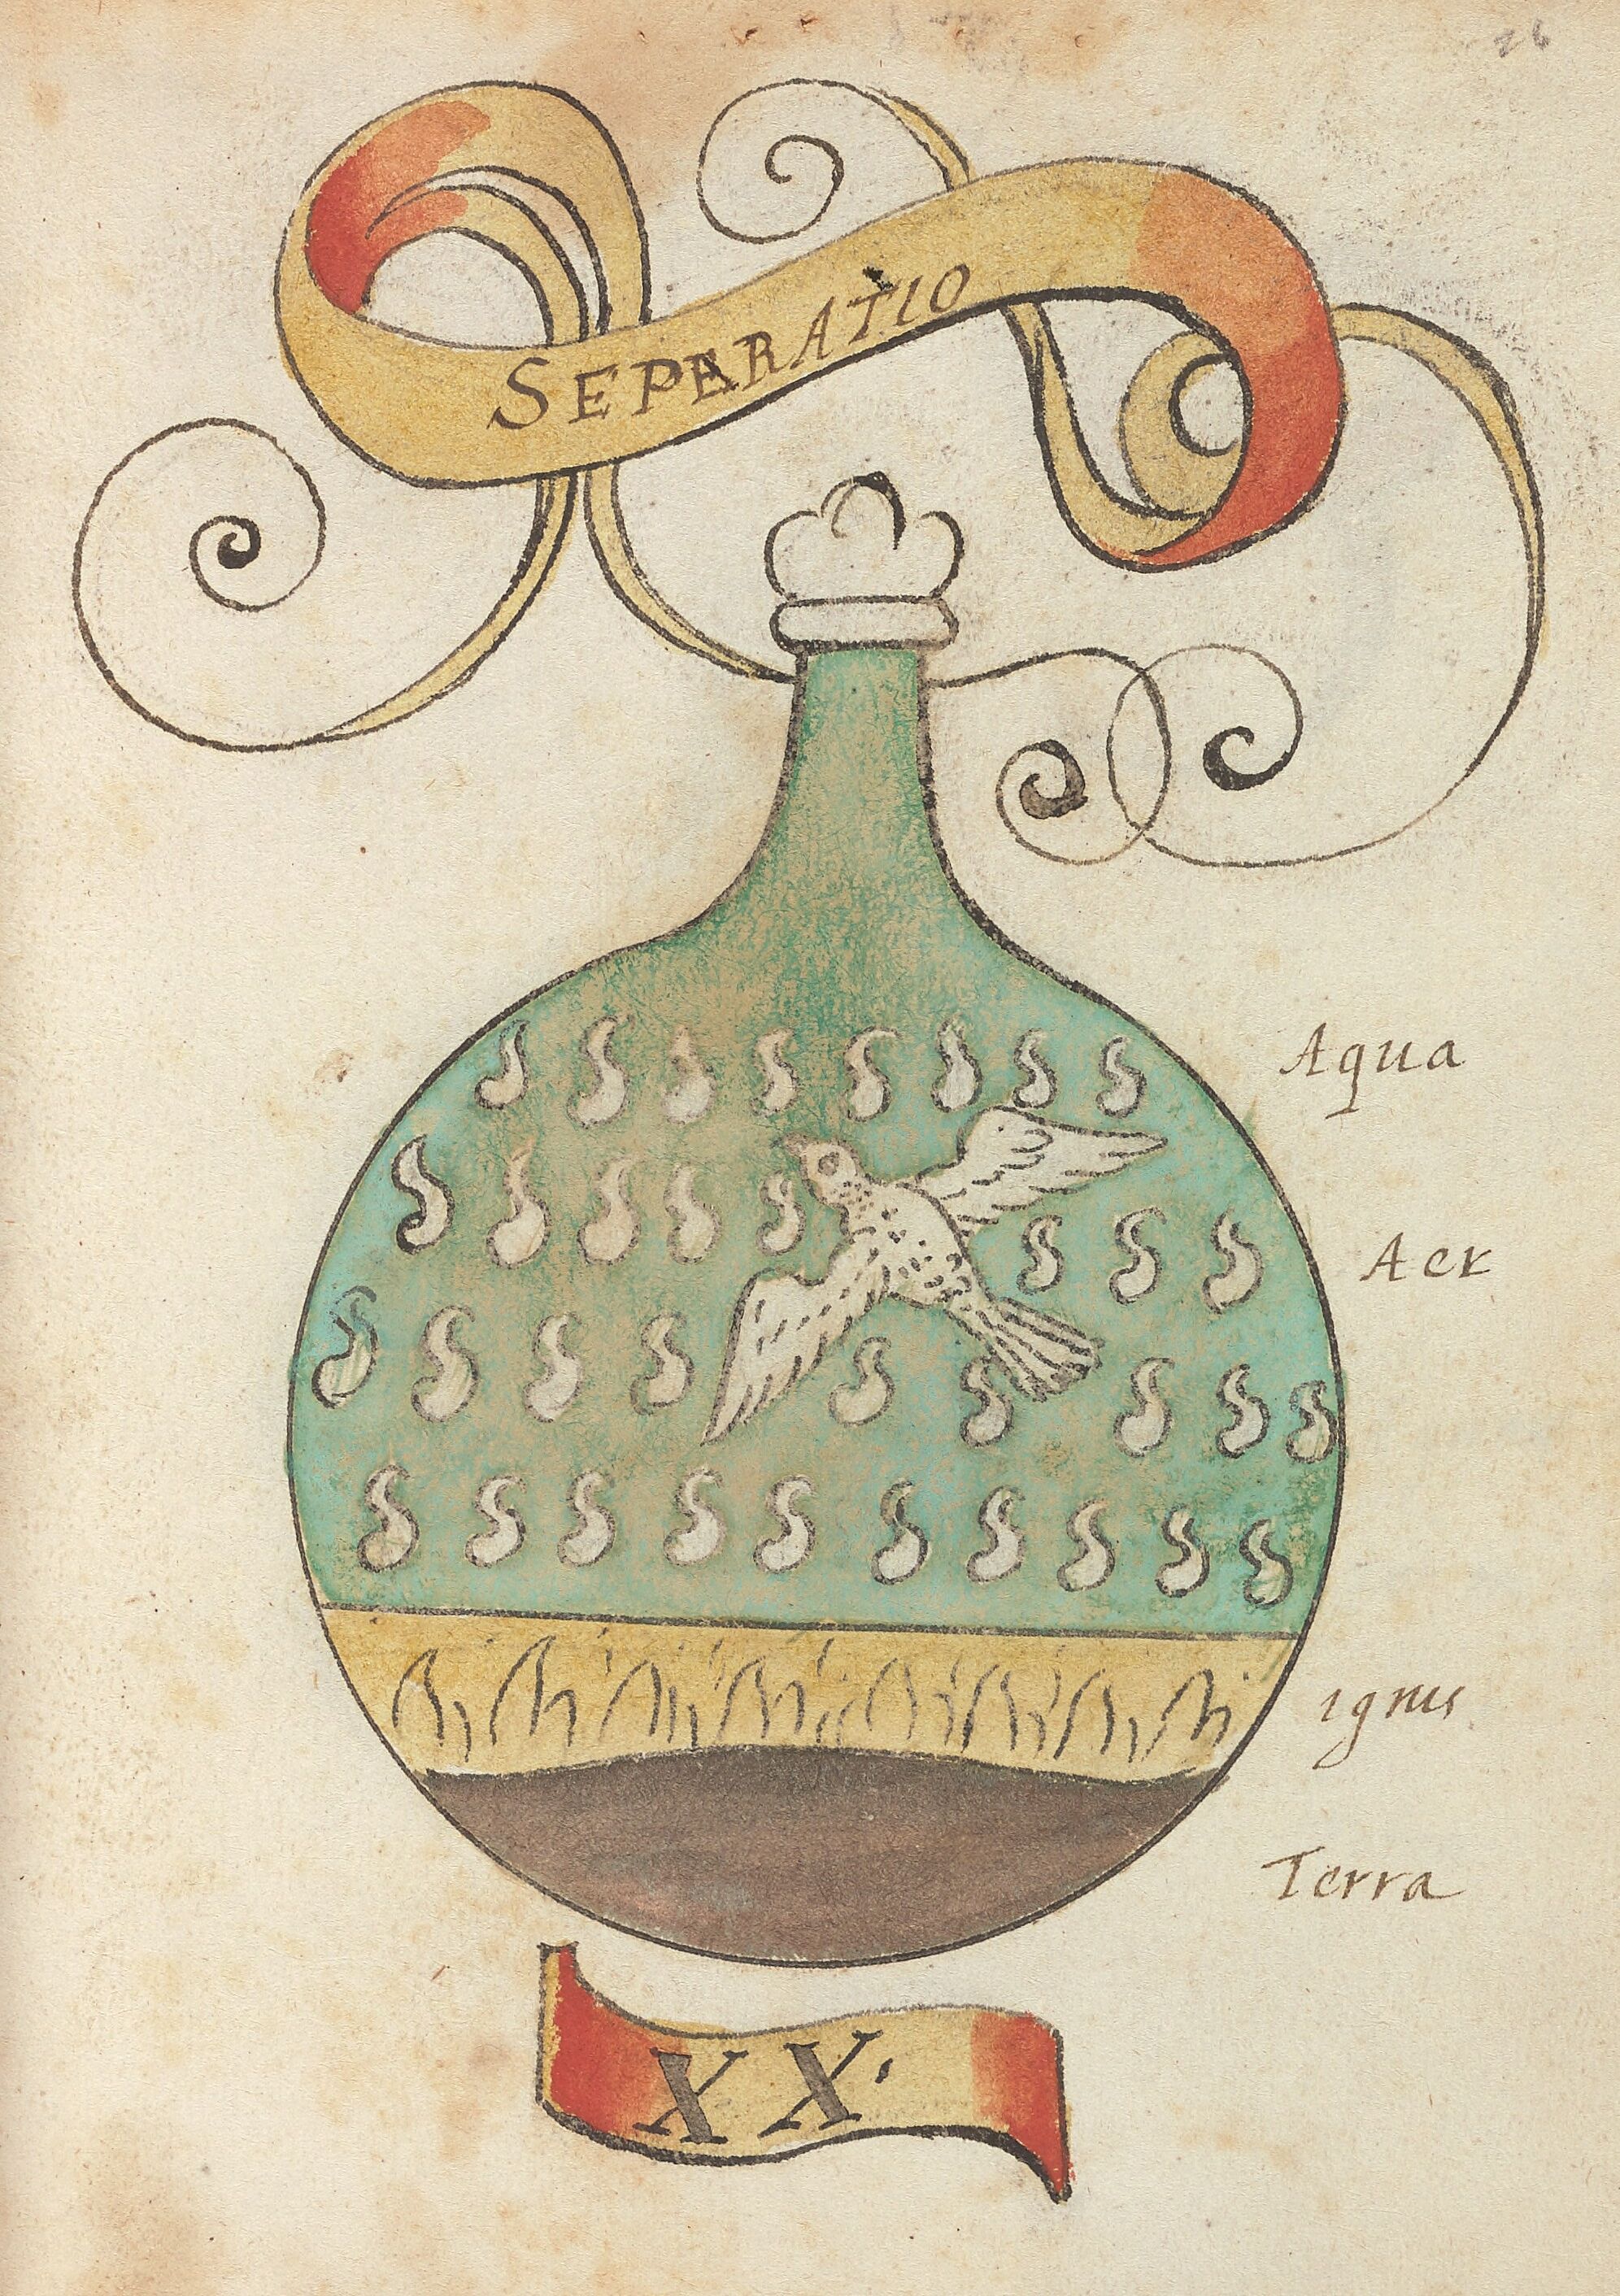 26
SEPARATIO
Aqua
Aer
ignis
Terra
XX.